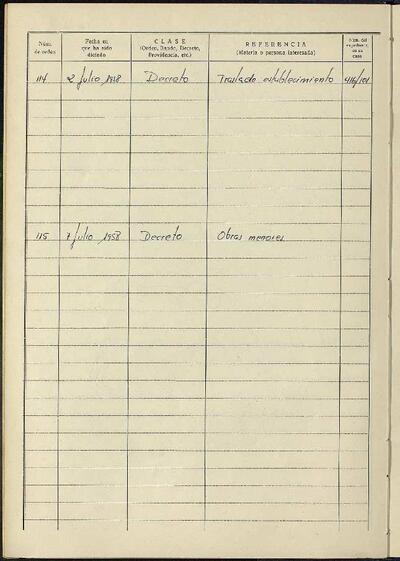 Núm. de orden | Fecha en que ha sido dictado | CLASE (Orden, Bando, Decreto, Providencia, etc.) | REFERENCIA (Materia o persona interesada) | Núm. del expediente en su caso
114 | 2 julio 1958 | Decreto | Traslado establecimiento
115 | 7 julio 1958 | Decreto | Obras menores